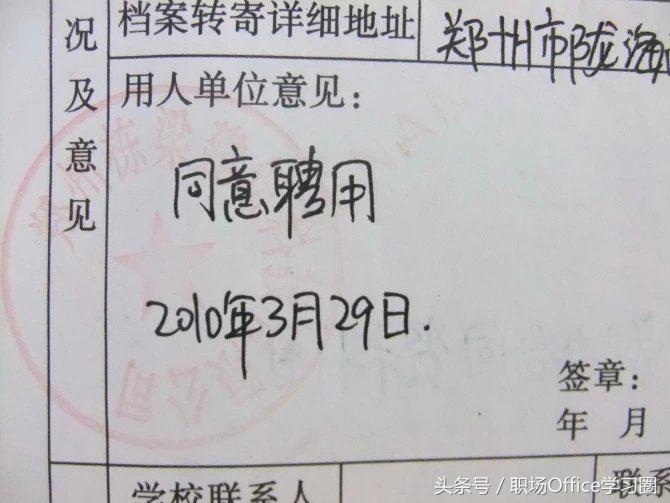 况及意见
档案转寄详细地址
郑州市陇海
用人单位意见：
同意聘用
2010年3月29日.
签章：
年 月
学校联系人
联系
头条号 / 职场Office学习圈